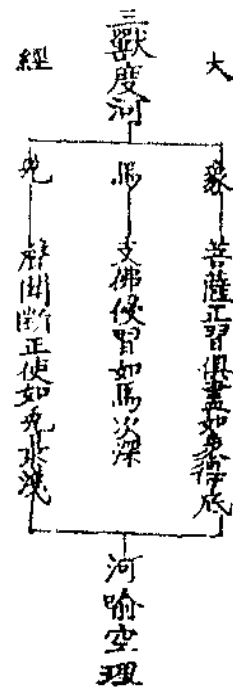 大
三獸度河
經
象
菩薩正習俱盡如象得底
馬
支佛侵習如馬次深
兔
聲聞斷正使如兔水淺
河喻空理